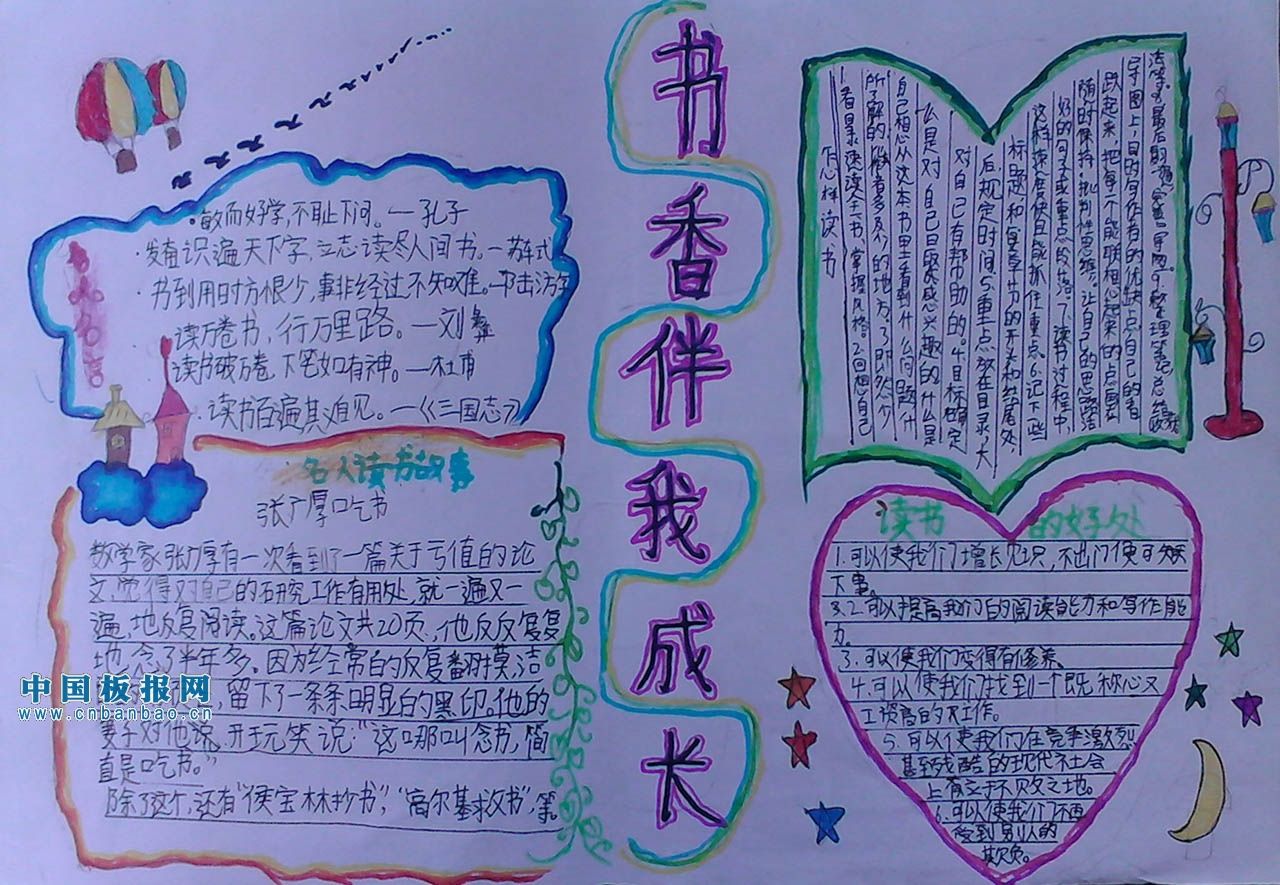 书香伴我成长
名人名言
·敏而好学,不耻下问。—孔子
·发奋识遍天下字,立志读尽人间书。—苏轼
书到用时方恨少,事非经过不知难。—陆游
读万卷书,行万里路。—刘彝
读书破万卷,下笔如有神。—杜甫
·读书百遍其义自见。—《三国志》
名人读书故事
张广厚吃书
数学家张广厚有一次看到了一篇关于亏值的论
文,觉得对自己的研究工作有用处,就一遍又一
遍,地反复阅读。这篇论文共20页,他反反复复
地念了半年多。因为经常的反复翻摸,洁
留下了一条条明显的黑印。他的
妻子对他说,开玩笑说:“这哪叫念书,简
直是吃书。”
除了这个,还有“侯宝林抄书”,“高尔基救书”,等。
怎样读书
1.看目录速读全书,掌握风格。2.回想自己
所了解的,
自己想从这本书里看到什么问题,什
么是对自己日最感兴趣的,什么是
对自己有帮助的。4.目标确定
后,规定时间5.重点放在目录,大
标题和每章节的开头和结尾处,
这样读速度快且能抓住重点6.记下一些
好的句子或重点的话。7.读书过程中
随时保持批判性思维。让自己的思路活
跃起来,把每个能联想起来的点画到
导图上,
读书的好处
1.可以使我们增长见识,不出门便可知天
下事。
3.2.可以提高我们的阅读能力和写作能
力。
3.可以使我们变得有修养。
4.可以使我们找到一个既称心又
工资高的工作。
5.可以使我们在竞争激烈
甚至残酷的现代社会
上有立于不败之地。
6.可以使我们不再
受到别人的
欺负。
中国板报网
www.cnbanbao.cn